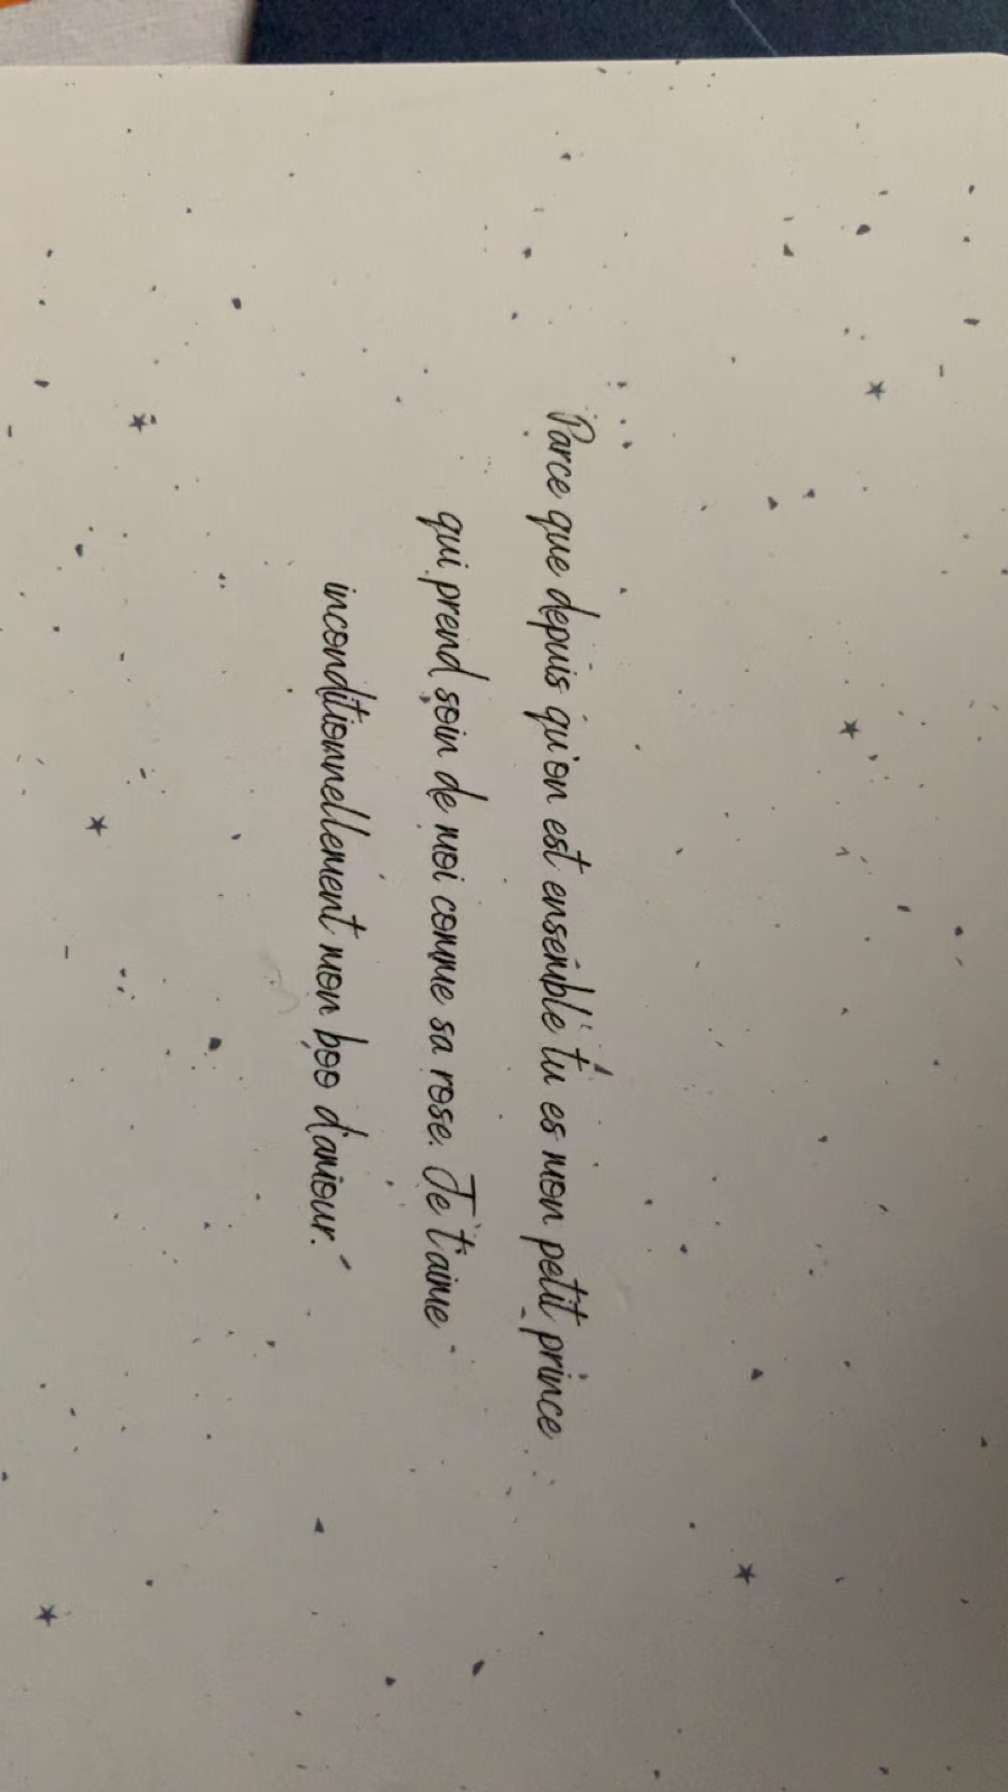 Parce que depuis qu'on est ensemble tu es mon petit prince
qui prend soin de moi comme sa rose. Je t'aime
inconditionnellement mon boo d'amour.